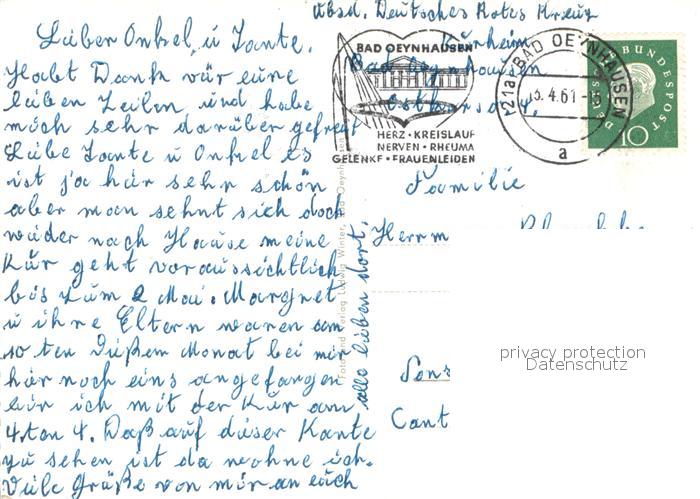 Absd. Deutsches Rotes Kreuz
Kurheim
Bad Oeynhausen
Lieber Onkel, u Tante.
Habt Dank vür eure
lieben Zeilen und habe
mich sehr darüber gefreut
Liebe Tante u Onkel es
ist ja hür sehr schön
aber man sehnt sich doch
wieder nach Hause meine
Kür geht voraussichtlich
bis zum 2 Mai. Margret
u ihre Eltern waren am
10 ten diesen Monat bei mir
hür noch eins angefangen
hür ich mit der Kür am
4 ten 4. Daß auf dieser Kante
zu sehen ist da wohne ich.
Viele Grüße von mir an euch
alle lieben dort.
BAD OEYNHAUSEN
HERZ · KREISLAUF
NERVEN · RHEUMA
GELENKE · FRAUENLEIDEN
(21a) BAD OEYNHAUSEN
4.61
a
DEUTSCHE BUNDESPOST
10
Familie
Herrm
Cant
Foto und Verlag Ludwig Winter, Bad Oeynhausen
privacy protection
Datenschutz